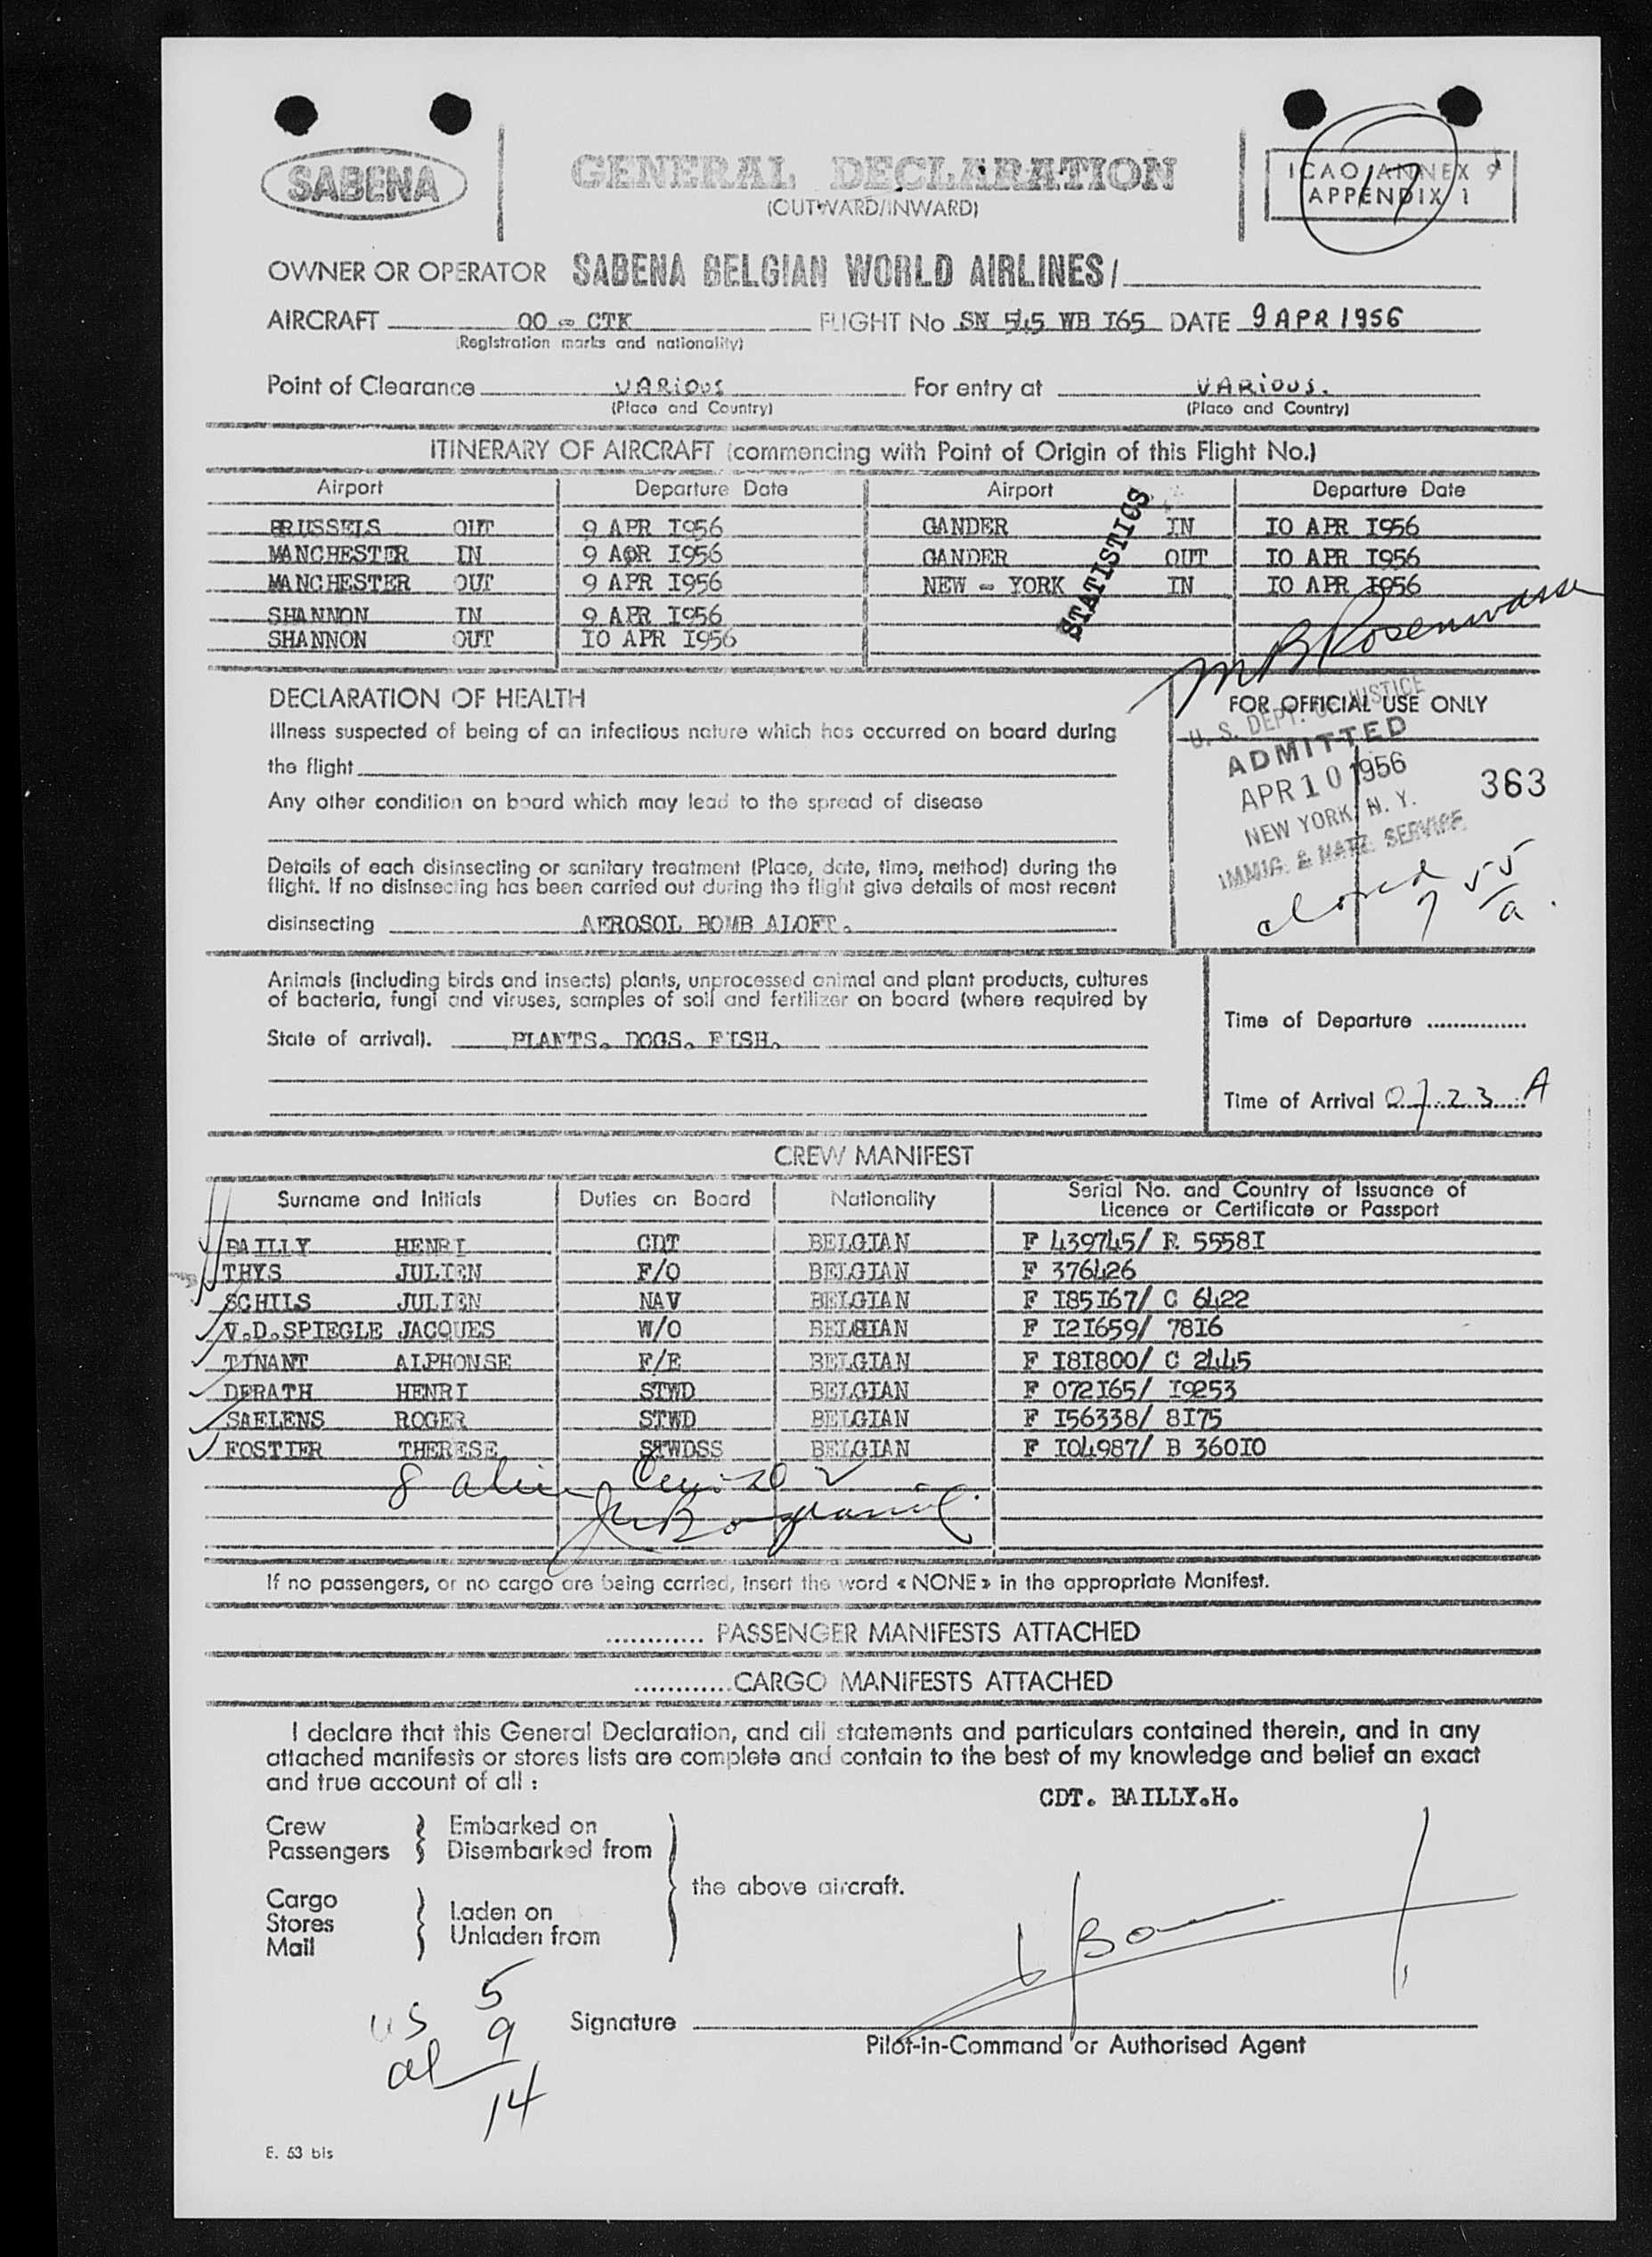 SABENA
GENERAL DECLARATION
(OUTWARD/INWARD)
ICAO ANNEX 9
APPENDIX 1
17
OWNER OR OPERATOR SABENA BELGIAN WORLD AIRLINES/
AIRCRAFT OO - CTK FLIGHT No SN 545 WB I65 DATE 9 APR 1956
(Registration marks and nationality)
Point of Clearance VARIOUS For entry at VARIOUS.
(Place and Country) (Place and Country)
ITINERARY OF AIRCRAFT (commencing with Point of Origin of this Flight No.)
Airport Departure Date Airport Departure Date
BRUSSELS OUT 9 APR I956 GANDER IN IO APR I956
MANCHESTER IN 9 APR I956 GANDER OUT IO APR I956
MANCHESTER OUT 9 APR I956 NEW - YORK IN IO APR I956
SHANNON IN 9 APR I956
SHANNON OUT IO APR I956
STATISTICS
M B Rosenwasser
DECLARATION OF HEALTH
Illness suspected of being of an infectious nature which has occurred on board during
the flight
Any other condition on board which may lead to the spread of disease
Details of each disinsecting or sanitary treatment (Place, date, time, method) during the
flight. If no disinsecting has been carried out during the flight give details of most recent
disinsecting AEROSOL BOMB ALOFT.
FOR OFFICIAL USE ONLY
U. S. DEPT. OF JUSTICE
ADMITTED
APR 10 1956
NEW YORK, N. Y.
IMMIG. & NATZ. SERVICE
363
closed 7 55/a.
Animals (including birds and insects) plants, unprocessed animal and plant products, cultures
of bacteria, fungi and viruses, samples of soil and fertilizer on board (where required by
State of arrival). PLANTS. DOGS. FISH.
Time of Departure
Time of Arrival 07.23 A
CREW MANIFEST
Surname and Initials Duties on Board Nationality Serial No. and Country of Issuance of
Licence or Certificate or Passport
BAILLY HENRI CDT BELGIAN F 439745/ R 5558I
THYS JULIEN F/O BELGIAN F 376426
SCHILS JULIEN NAV BELGIAN F I85I67/ C 6422
V.D.SPIEGLE JACQUES W/O BELGIAN F I2I659/ 78I6
TINANT ALPHONSE F/E BELGIAN F I8I800/ C 2445
DERATH HENRI STWD BELGIAN F 072I65/ I9253
SAELENS ROGER STWD BELGIAN F I56338/ 8I75
FOSTIER THERESE STWDSS BELGIAN F IO4987/ B 360IO
8 alien
If no passengers, or no cargo are being carried, insert the word « NONE » in the appropriate Manifest.
............ PASSENGER MANIFESTS ATTACHED
............CARGO MANIFESTS ATTACHED
I declare that this General Declaration, and all statements and particulars contained therein, and in any
attached manifests or stores lists are complete and contain to the best of my knowledge and belief an exact
and true account of all :
CDT. BAILLY.H.
Crew Embarked on
Passengers Disembarked from
the above aircraft.
Cargo Laden on
Stores Unladen from
Mail
US 5
al 9
14
Signature
Pilot-in-Command or Authorised Agent
E. 53 bis